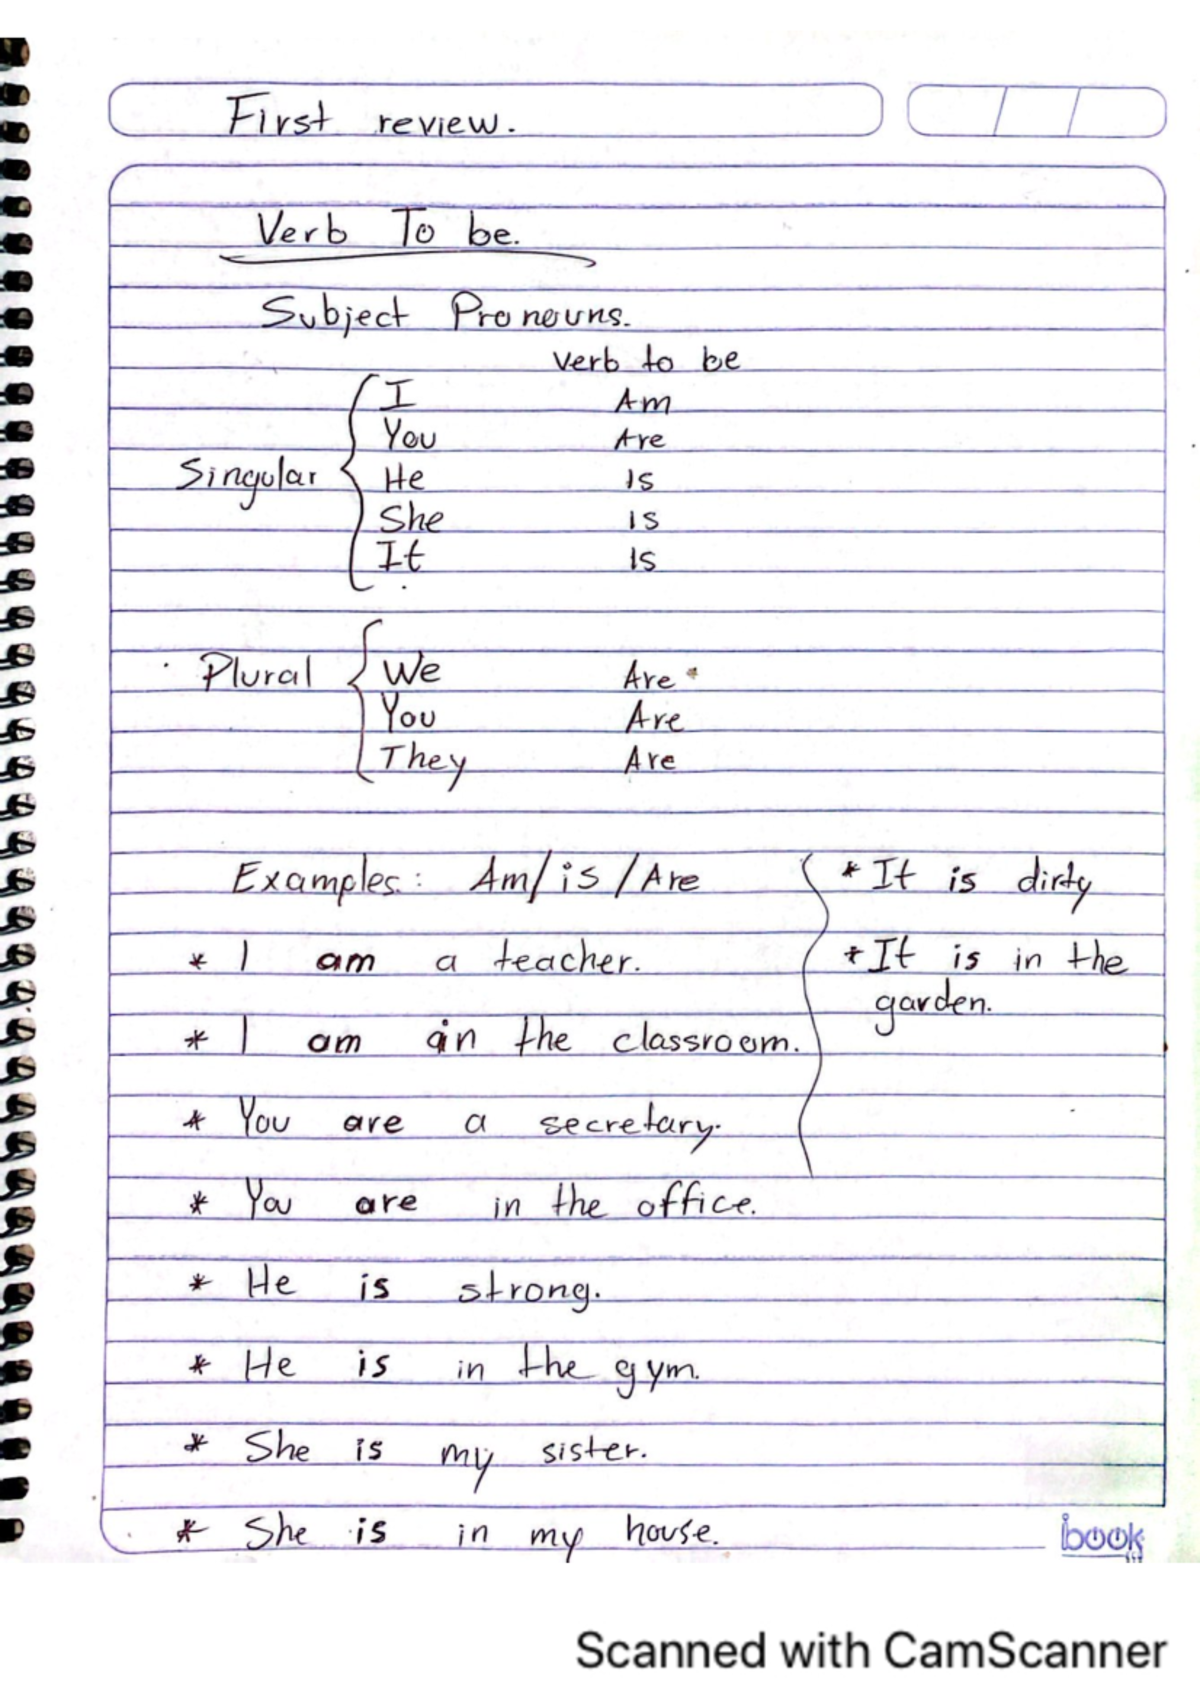 First review.
Verb To be.
Subject Pronouns.
verb to be
I Am
You Are
Singular He Is
She is
It Is
Plural We Are
You Are
They Are
Examples: Am/is/Are
* I am a teacher.
* I am in the classroom.
* You are a secretary.
* You are in the office.
* He is strong.
* He is in the gym.
* She is my sister.
* She is in my house.
* It is dirty
* It is in the
garden.
book
Scanned with CamScanner